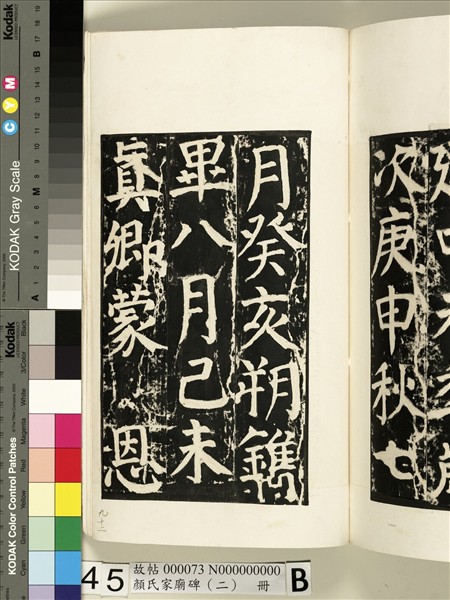 次庚申秋七
月癸亥朔鐫
畢八月己未
真卿蒙恩
Kodak
LICENSED PRODUCT
C Y M
KODAK Gray Scale
A 1 2 3 4 5 6 M 8 9 10 11 12 13 14 15 B 17 18 19
Kodak
LICENSED PRODUCT
KODAK Color Control Patches
Blue Cyan Green Yellow Red Magenta White 3/Color Black
45
故帖 000073 N000000000
顏氏家廟碑（二） 冊
B